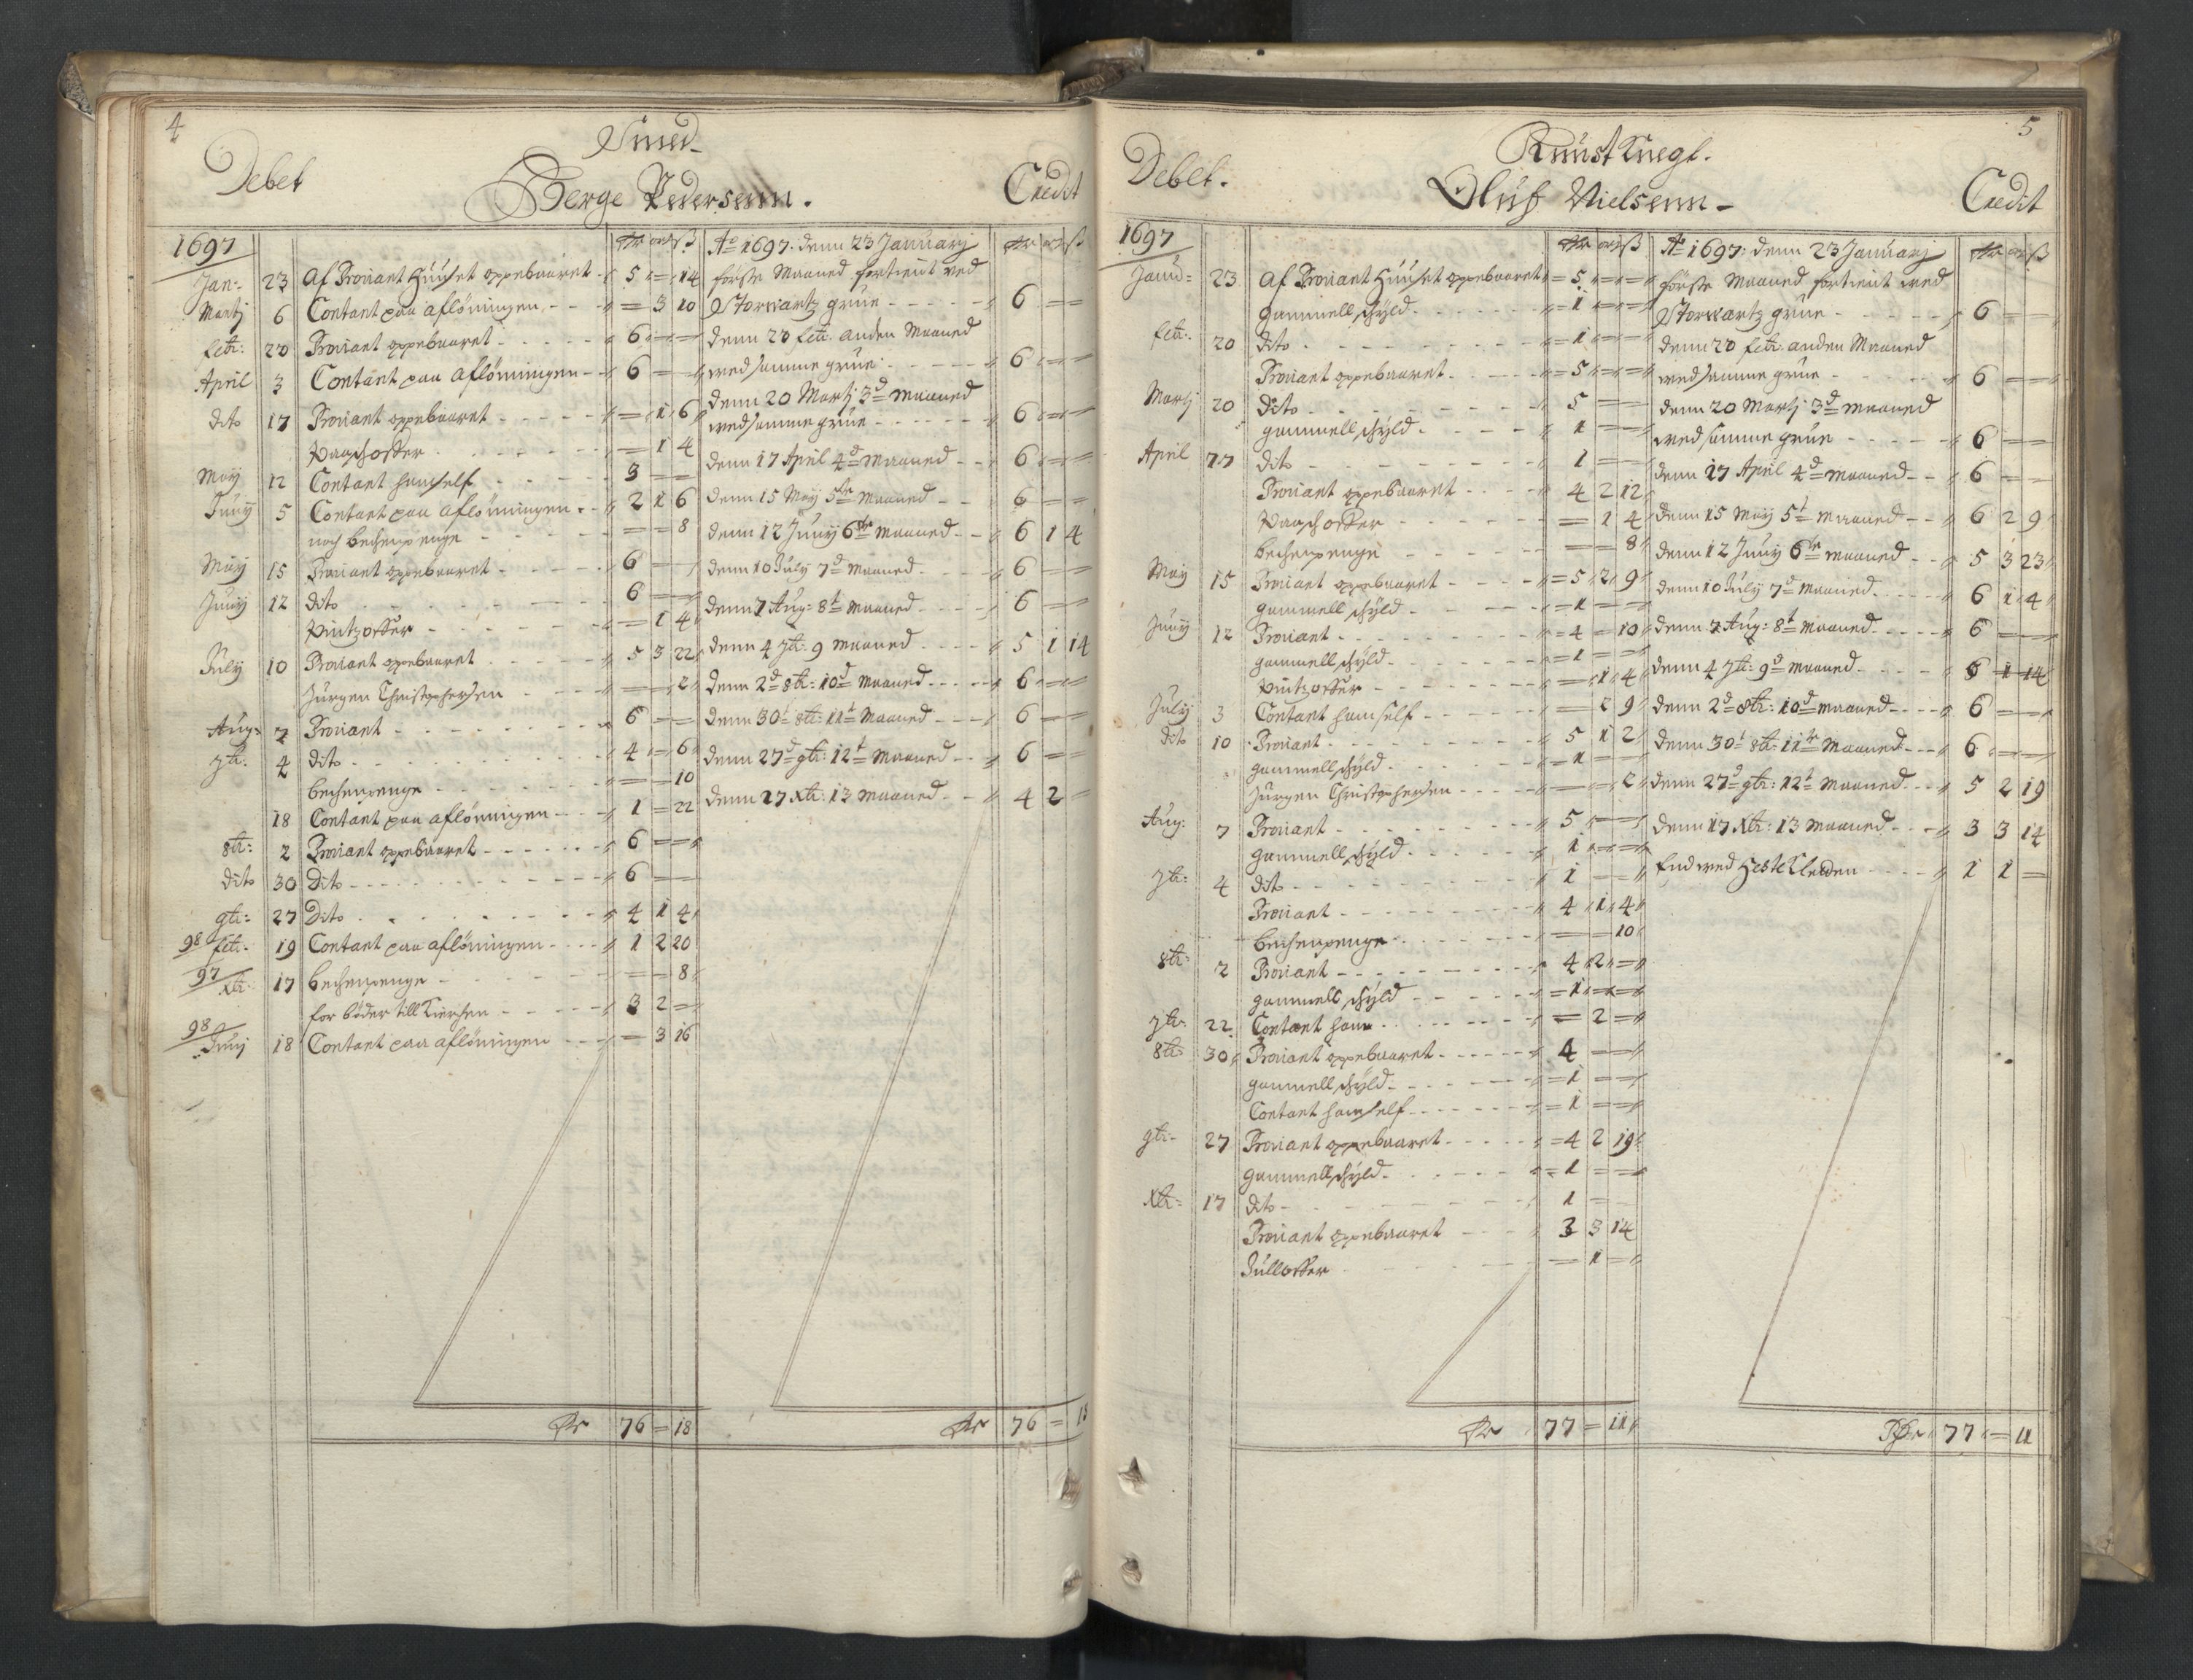 4
Smed
Debet
Berge Pedersenn.
Credit
1697
Jan: 23 Af Proviant Huuset oppebaaret 5 = 14
Martj 6 Contant paa aflöningen = 3 10
febr: 20 Proviant oppebaaret 6 = =
April 3 Contant paa aflöningen 6 = =
dito 17 Proviant oppebaaret = 1 6
Paaschoffer = 1 4
Maÿ 12 Contant hamself 3 = =
Junÿ 5 Contant paa aflönningen 2 1 6
noch bechenpenge = = 8
Maÿ 15 Proviant oppebaaret 6 = =
Junÿ 12 dito 6 = =
Pintzoffer = 1 4
Julÿ 10 Proviant oppebaaret 5 3 22
Jürgen Christophersen = = 2
Aug: 7 Proviant 6 = =
7br: 4 dito 4 = 6
bechenpenge = = 10
18 Contant paa aflönningen 1 = 22
8br: 2 Proviant oppebaaret 6 = =
dito 30 Dito 6 = =
9br: 27 Dito 4 1 4
98 febr. 19 Contant paa aflöningen 1 2 20
97 Xbr: 17 bechenpenge = = 8
for böder till Kierchen 3 2 =
98 Junÿ 18 Contant paa aflöningen = 3 16
Dr 76 = 18
Ao 1697. denn 23 Januarj
förste Maaned fortient ved
Storwartz grue 6 = =
denn 20 febr. anden Maaned
ved samme grue 6 = =
denn 20 Martj 3d Maaned
ved samme grue 6 = =
denn 17 April 4d Maaned 6 = =
denn 15 Maÿ 5te Maaned 6 = =
denn 12 Junÿ 6te Maaned 6 1 4
denn 10 Julÿ 7d Maaned 6 = =
denn 7 Aug: 8t Maaned 6 = =
denn 4 7br: 9 Maaned 5 1 14
denn 2d 8br: 10d Maaned 6 = =
denn 30t 8br: 11t Maaned 6 = =
denn 27d 9br: 12t Maaned 6 = =
denn 17 Xbr: 13 Maaned 4 2 =
Dr 76 = 18
5
Kunst Knegt.
Debet.
Oluf Nielsenn
Credit
1697
Janu: 23 Af Proviant Huuset oppebaaret 5 = =
gammell schÿld 1 = =
febr: 20 dito 1 = =
Proviant oppebaaret 5 = =
Martj 20 Dito 5 = =
gammell schÿld 1 = =
April 17 dito 1 = =
Proviant oppebaaret 4 2 12
Paaschoffer = 1 4
bechenpenge = = 8
Maÿ 15 Proviant oppebaaret 5 2 9
gammell schÿld 1 = =
Junÿ 12 Proviant 4 = 10
gammell schÿld 1 = =
Pintzoffer = 1 4
Julÿ 3 Contant hamself = 2 9
dito 10 Proviant 5 1 2
gammell schÿld 1 = =
Jürgen Christophersen = = 2
Aug: 7 Proviant 5 = =
gammell schÿld 1 = =
7br: 4 dito 1 = =
Proviant 4 1 4
bechenpenge = = 10
8br: 2 Proviant 4 2 =
gammell schÿld 1 = =
7br. 22 Contant ham = 2 =
8br 30 Proviant oppebaaret 4 = =
gammell schÿld 1 = =
Contant hamself 1 = =
9br. 27 Proviant oppebaaret 4 2 19
gammell schÿld 1 = =
Xbr: 17 dito 1 = =
Proviant oppebaaret 3 3 14
Jülloffer = 1 =
Dr 77 = 11
Ao 1697: denn 23 Januarj
förste Maaned fortient ved
Storwartz grue 6 = =
denn 20 febr: anden Maaned
ved samme grue 6 = =
denn 20 Martj 3d Maaned
ved samme grue 6 = =
denn 17 April 4d Maaned 6 = =
denn 15 Maÿ 5t Maaned 6 2 9
denn 12 Junÿ 6te Maaned 5 3 23
denn 10 Julÿ 7d Maaned 6 1 4
denn 7 Aug: 8t Maaned 6 = =
denn 4 7br: 9d Maaned 6 1 14
denn 2d 8br: 10d Maaned 6 = =
denn 30t 8br: 11te Maaned 6 = =
denn 27d 9br: 12t Maaned 5 2 19
denn 17 Xbr: 13 Maaned 3 3 14
End ved Heste Kleeden 1 1 =
Dr 77 = 11